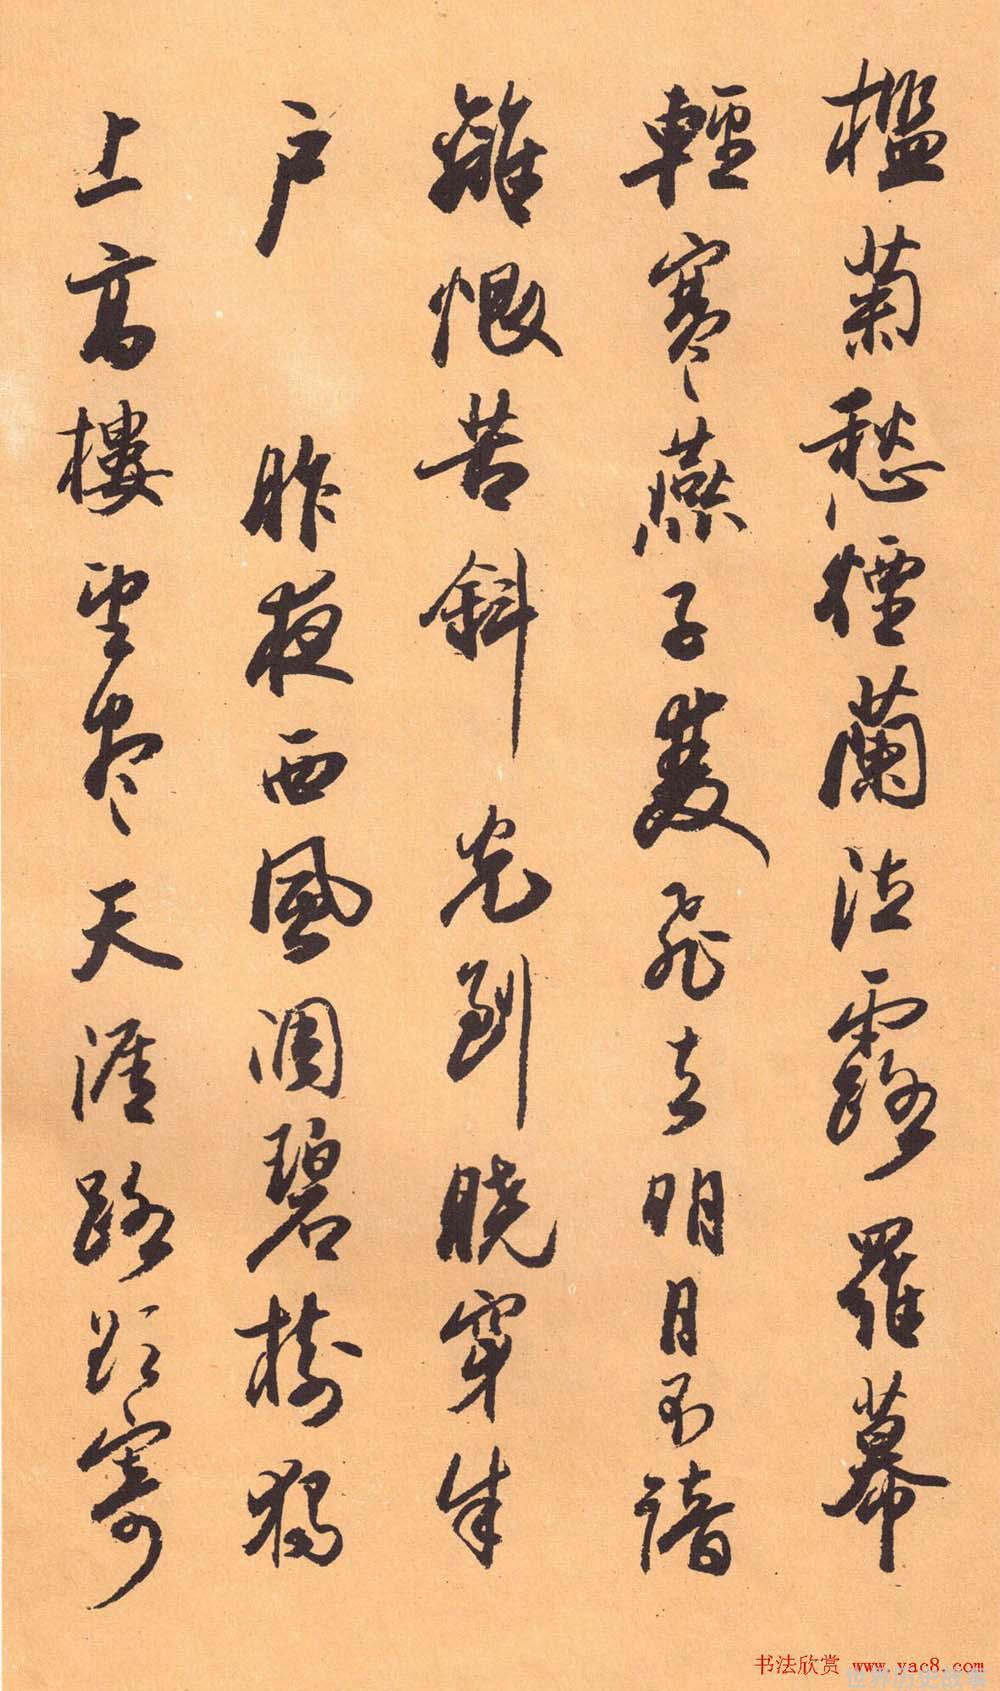 檻菊愁煙蘭泣露羅幕
輕寒燕子雙飛去明月不諳
離恨苦斜光到曉穿朱
户 昨夜西風凋碧樹獨
上高樓望盡天涯路欲寄
书法欣赏 www.yac8.com
世界历史故事